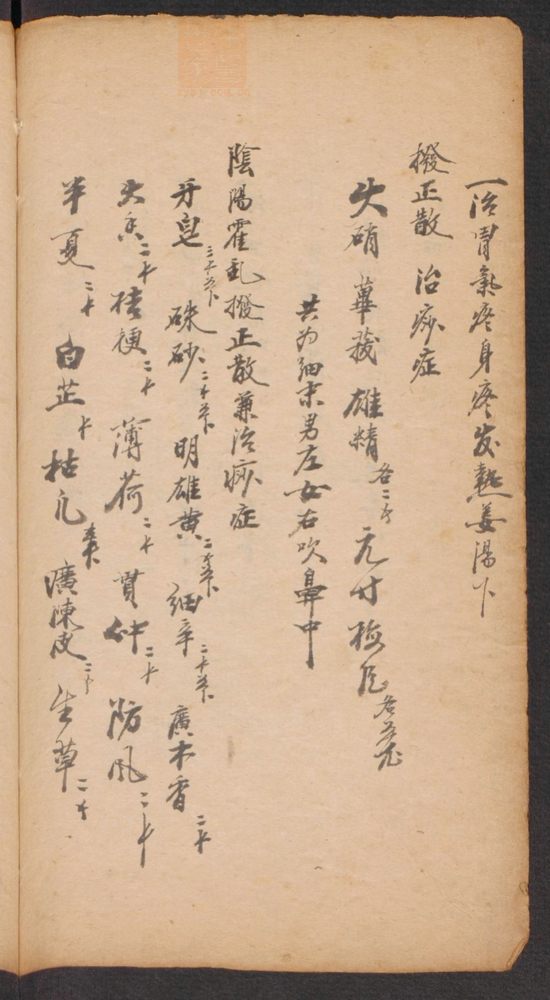 一治胃氣疼身疼发熱姜湯下
撥正散 治痧症
火硝 蓽莪 雄精 各二个 元寸 梅片 各五厘
共为细末男左女右吹鼻中
陰陽霍乱撥正散兼治痧症
牙皂 三个五卜 硃砂 二个五卜 明雄黄 二个五卜 细辛 三个五卜 廣木香 二个
大香 二个 桔梗 二个 薄荷 二个 貫仲 二个 防风 二个
半夏 二个 白芷 个 枯凡 廣陳皮 二个 生草 二个